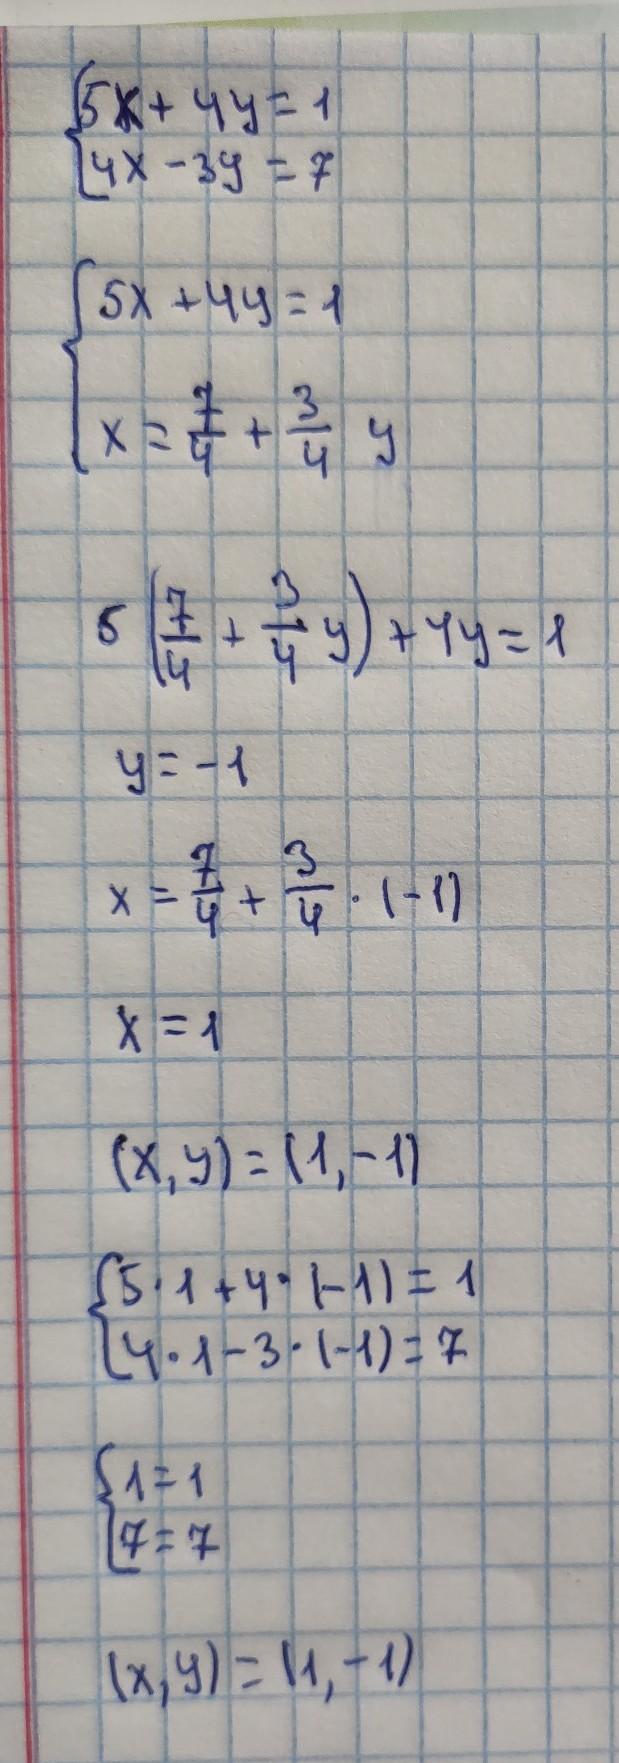 {5x + 4y = 1
{4x - 3y = 7
{5x + 4y = 1
x = 7/4 + 3/4 y
5 (7/4 + 3/4 y) + 4y = 1
y = -1
x = 7/4 + 3/4 · (-1)
x = 1
(x, y) = (1, -1)
{5 · 1 + 4 · (-1) = 1
{4 · 1 - 3 · (-1) = 7
{1 = 1
{7 = 7
(x, y) = (1, -1)